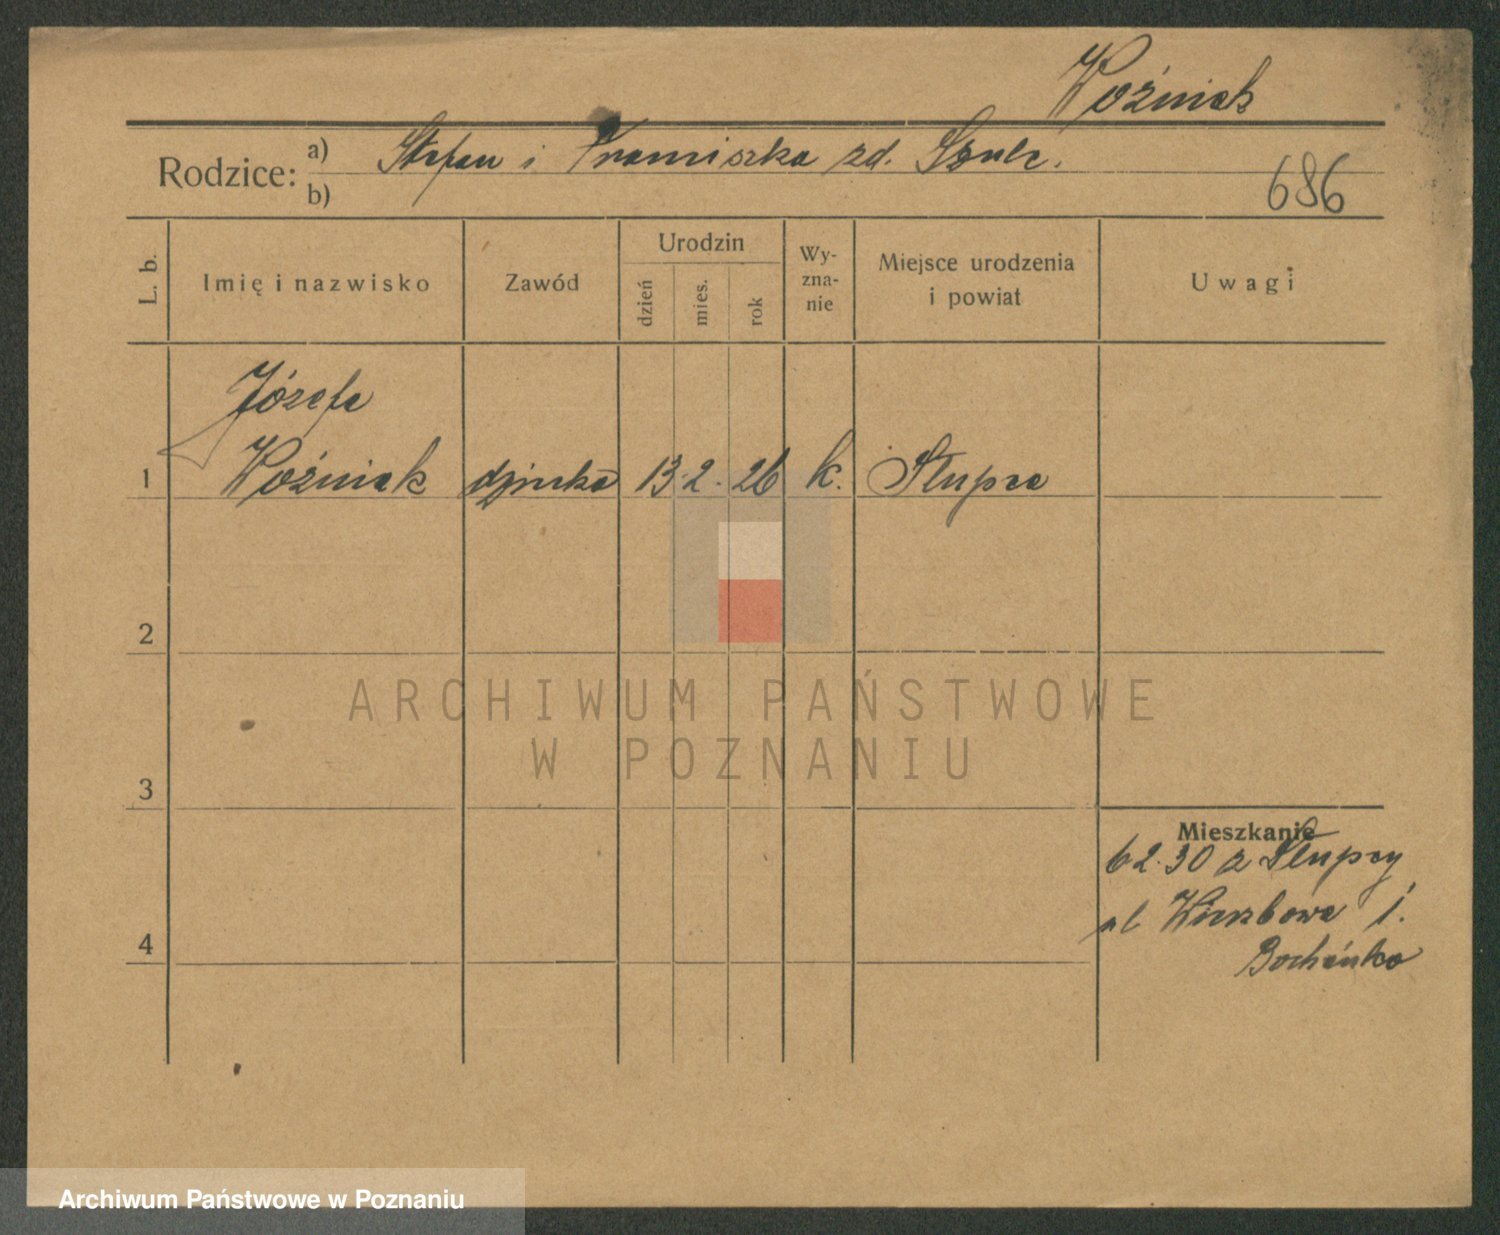 Woźniak
Rodzice: a) Stefan i Franciszka zd. Szulc.
b)
686
L. b.
Imię i nazwisko
Zawód
Urodzin
dzień
mies.
rok
Wy-
zna-
nie
Miejsce urodzenia
i powiat
Uwagi
Józefa
1 Woźniak 13 2. 26 k. Słupca
2
3
4
Mieszkanie
6 2.30 z Słupcy
ul Wierzbowa 1.
ARCHIWUM PAŃSTWOWE
W POZNANIU
Archiwum Państwowe w Poznaniu